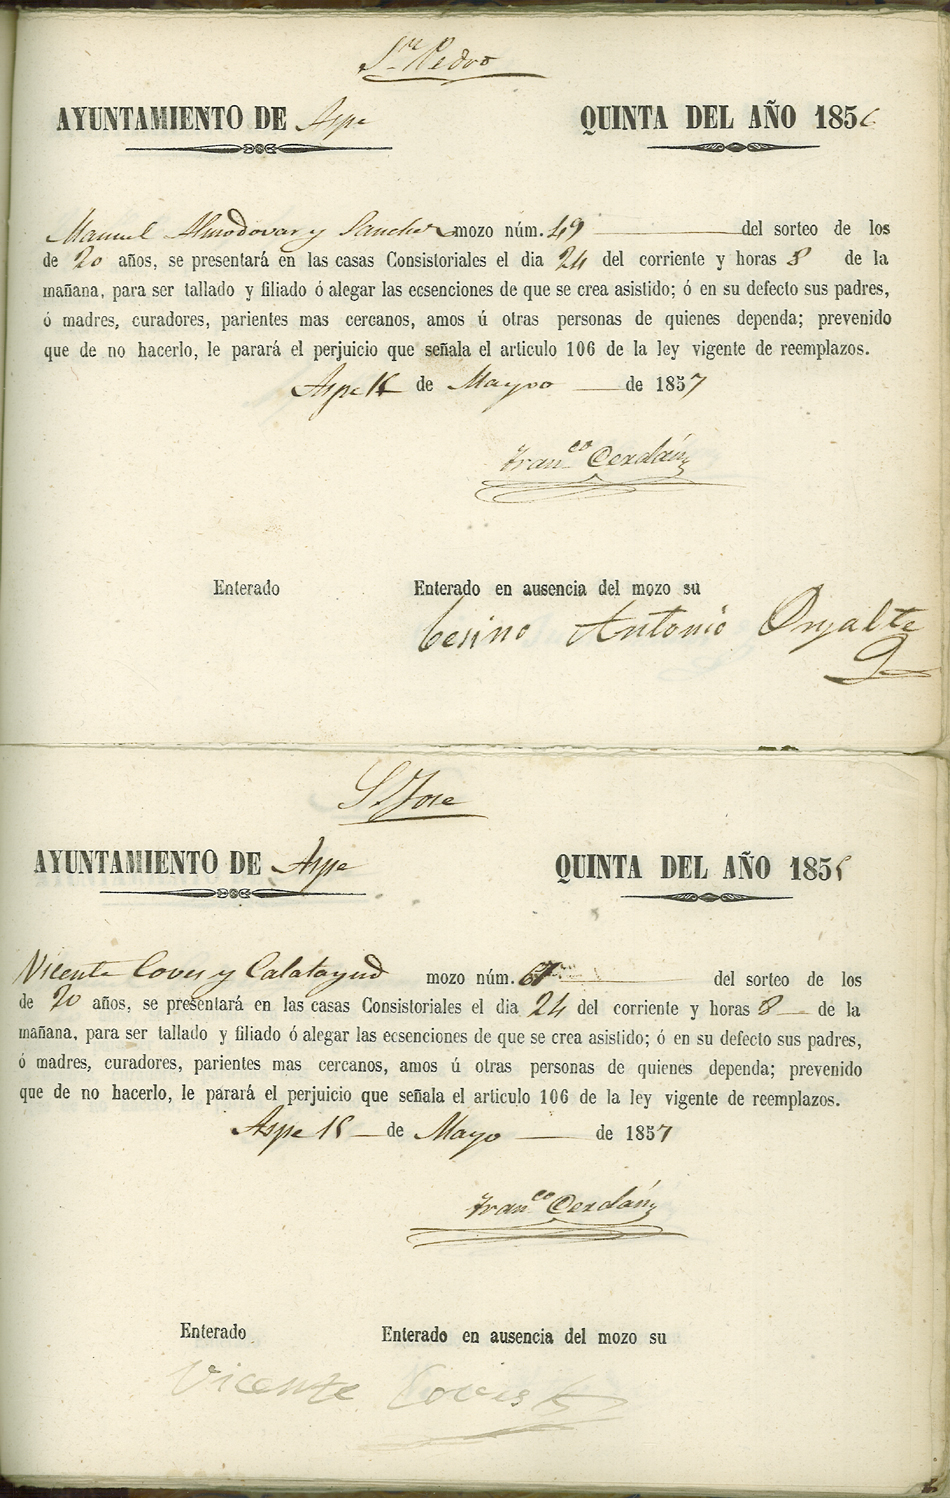 Sn Pedro
AYUNTAMIENTO DE Aspe QUINTA DEL AÑO 1856
Manuel Almodovar y Sanchez mozo núm. 49 del sorteo de los
de 20 años, se presentará en las casas Consistoriales el dia 24 del corriente y horas 8 de la
mañana, para ser tallado y filiado ó alegar las ecsenciones de que se crea asistido; ó en su defecto sus padres,
ó madres, curadores, parientes mas cercanos, amos ú otras personas de quienes dependa; prevenido
que de no hacerlo, le parará el perjuicio que señala el articulo 106 de la ley vigente de reemplazos.
Aspe de Mayo de 1857
Franco Cerdán
Enterado Enterado en ausencia del mozo su
Antonio
S Jose
AYUNTAMIENTO DE Aspe QUINTA DEL AÑO 185
Vicente Coves y Calatayud mozo núm. del sorteo de los
de 20 años, se presentará en las casas Consistoriales el dia 24 del corriente y horas 8 de la
mañana, para ser tallado y filiado ó alegar las ecsenciones de que se crea asistido; ó en su defecto sus padres,
ó madres, curadores, parientes mas cercanos, amos ú otras personas de quienes dependa; prevenido
que de no hacerlo, le parará el perjuicio que señala el articulo 106 de la ley vigente de reemplazos.
Aspe de Mayo de 1857
Franco Cerdán
Enterado Enterado en ausencia del mozo su
Vicente Coves